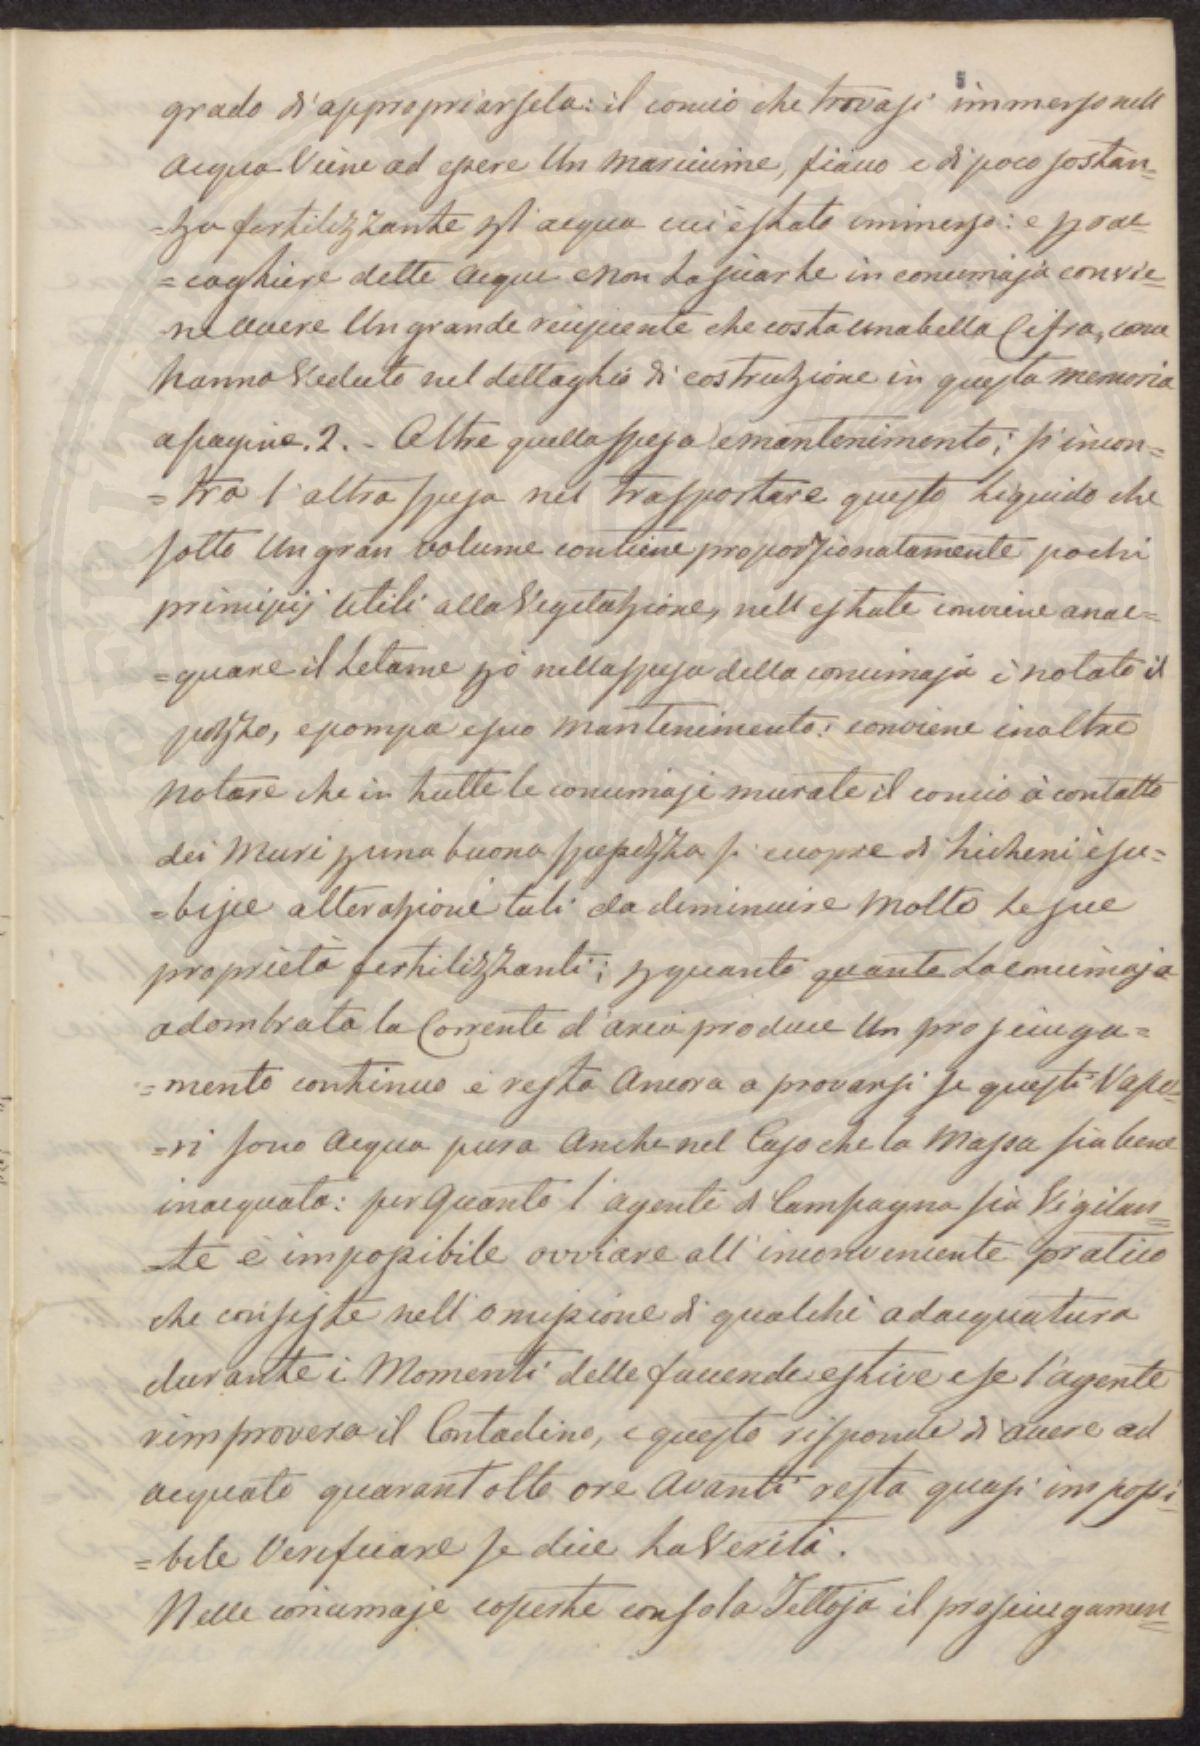 5
grado di appropriarsela: il concio che trovasi immerso nell
acqua Viene ad essere Un marciume, fiacco e di poco sostan=
=za fertilizzante pll'acqua cui è stato immerso: e p rac=
=cogliere dette acque e Non Lasciarle in concimaja convie=
ne avere Un grande recipiente che costa una bella Cifra, come
hanno Veduto nel dettaglio di costruzione in questa memoria
a pagine. 2. - Oltre quella spesa e mantenimento; s'incon=
=tra l'altra spesa nel trasportare questo Liquido che
sotto Un gran volume contiene proporzionatamente pochi
principij Utili alla Vegetazione, nell estate conviene anac=
=quare il Letame pò nella spesa della concimaja è notato il
pozzo, e pompa e suo mantenimento: conviene inoltre
Notare che in tutte le concimaje murate il concio à contatto
dei Muri p una buona spessezza si cuopre di Licheni e su=
=bisce alterazioni tali da diminuire Molto Le sue
proprietà fertilizzanti; p quanto quanto La concimaja
adombrata la Corrente d'aria produce Un prosciuga=
=mento continuo e resta Ancora a provarsi se questi Vapo=
=ri sono Acqua pura Anche nel Caso che la Massa sia bene
inacquata: per Quanto l'agente di Campagna sia Vigilan=
=te è impossibile ovviare all'inconveniente pratico
che consiste nell'omissione di qualche adacquatura
durante i Momenti delle faccende estive e se l'agente
rimprovera il Contadino, e questo risponde di avere ad
acquato quarantotto ore Avanti resta quasi impossi=
=bile Verificare se dice La Verità.
Nelle concimaje coperte con sola Tettoja il prosciugamen=